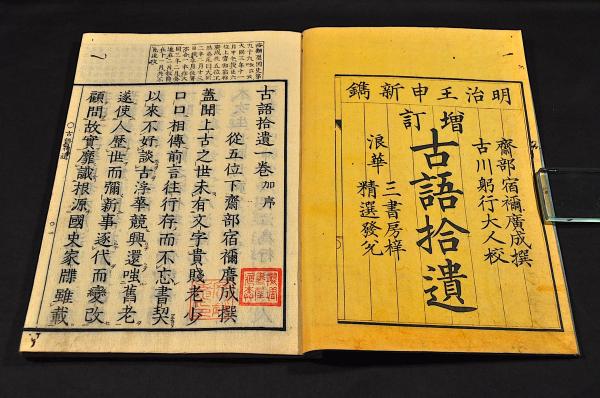 明治壬申新鐫
齋部宿禰廣成撰
古川躬行大人校
增訂
古語拾遺
浪華
三書房梓
精選發兌
古語拾遺一卷 加序
從五位下齋部宿禰廣成撰
蓋聞上古之世未有文字貴賤老少
口口相傳前言往行存而不忘書契
以來不好談古浮華競興還嗤舊老
遂使人歷世而彌新事逐代而變改
顧問故實靡識根源國史家牒雖載
古語拾遺